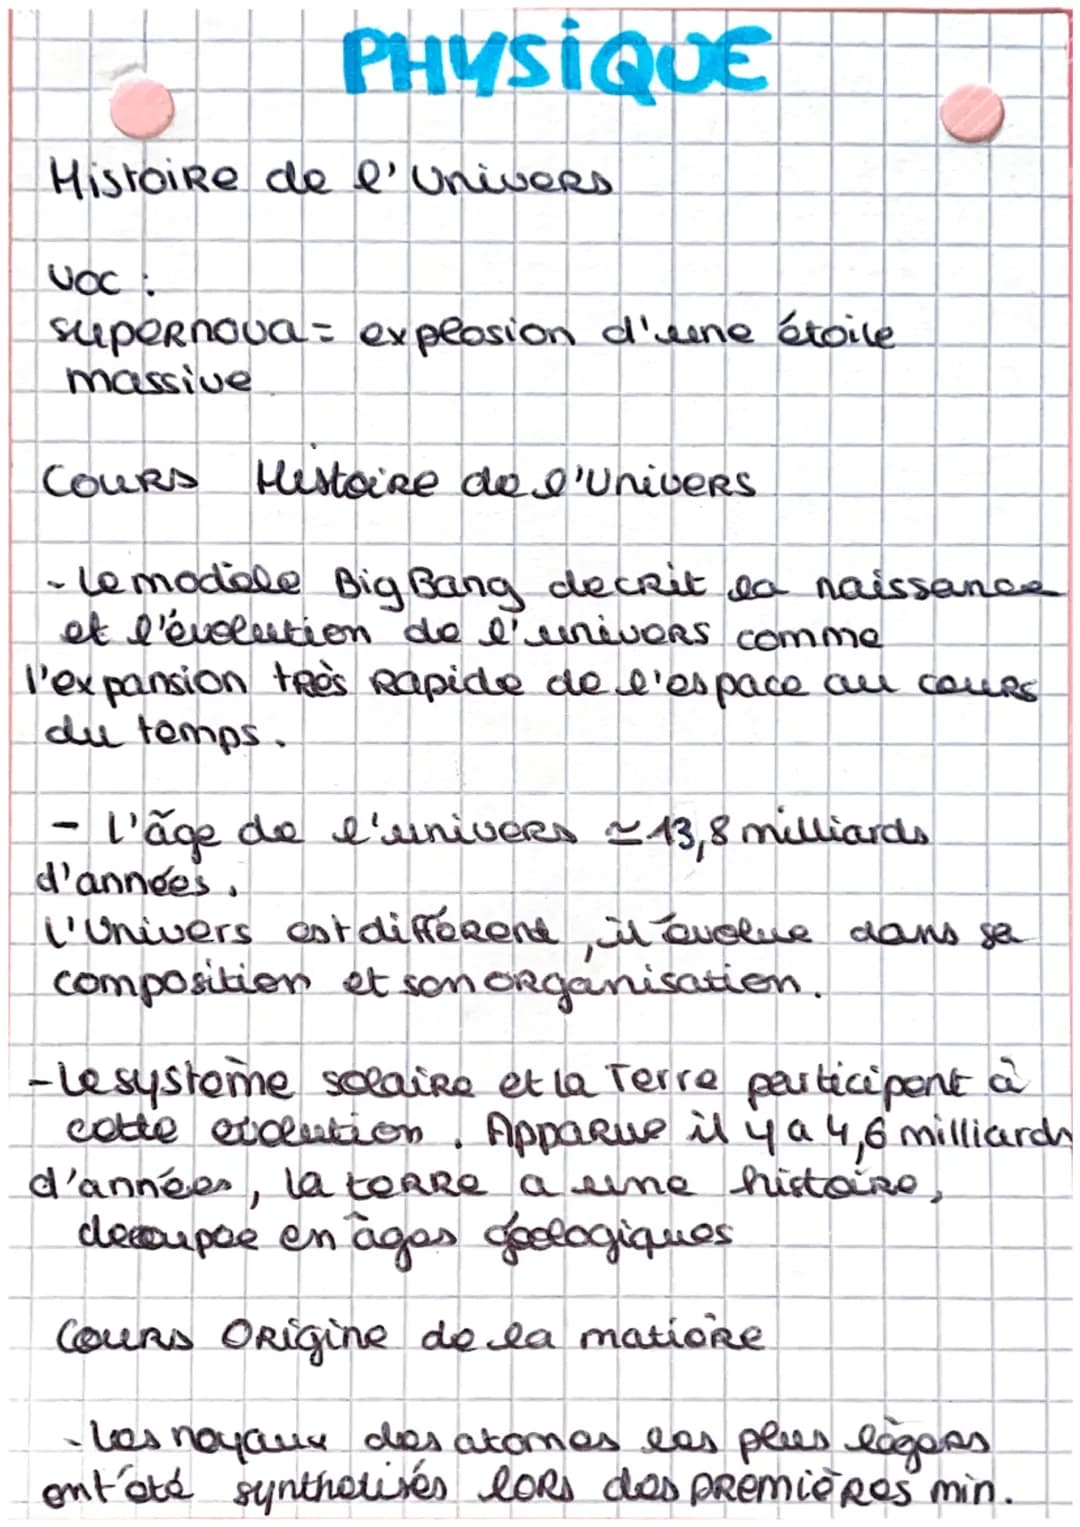 PHYSIQUE
Histoire de l'Univers
Voc :
supernova = explosion d'une étoile
massive
Cours Histoire de l'Univers
- Le modèle Big Bang decrit la naissance
et l'évolution de l'univers comme
l'expansion très rapide de l'espace au cours
du temps.
- L'âge de l'univers ≃ 13,8 milliards
d'années.
L'Univers est différent, il évolue dans sa
composition et son organisation.
- Le système solaire et la Terre participent à
cette evolution. Apparue il y a 4,6 milliards
d'années, la terre a une histoire,
decoupée en âges géologiques
Cours Origine de la matière
- Les noyaux des atomes les plus légers
ont été synthétisés lors des premières min.